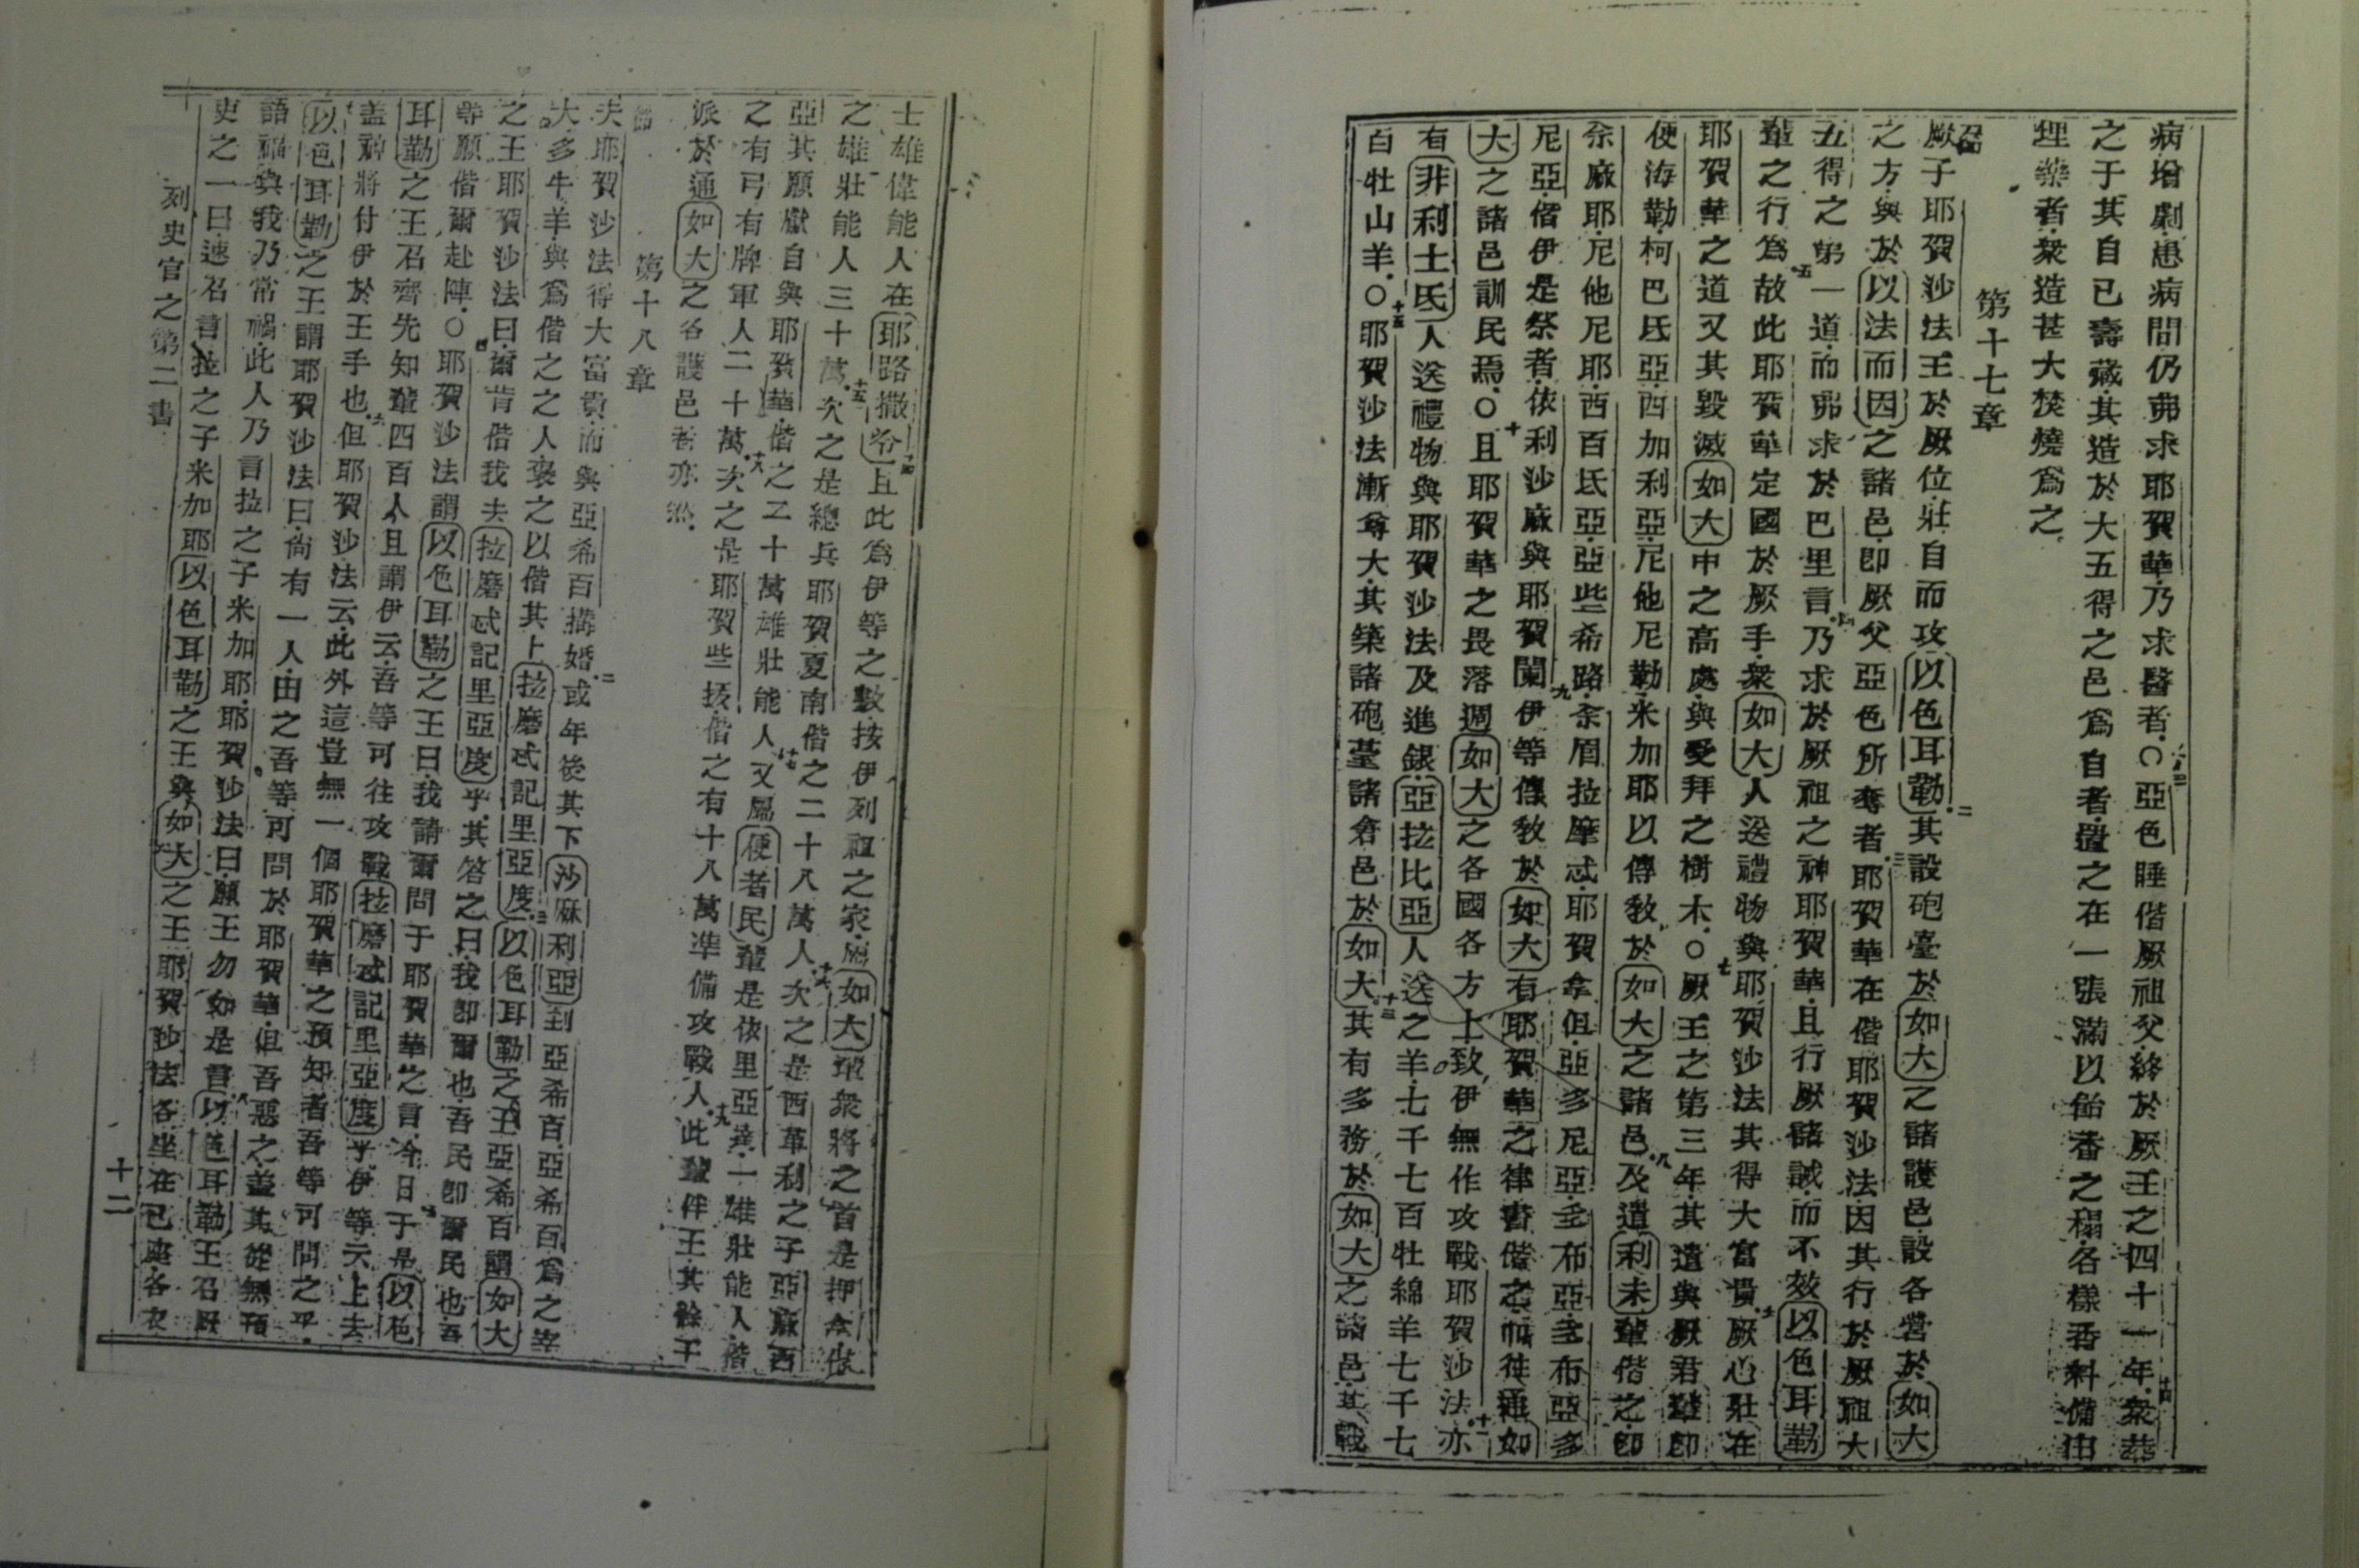 病增劇患病間仍弗求耶賀華乃求醫者○亞色睡偕厥祖父終於厥王之四十一年衆葬
之于其自己壽藏其造於大五得之邑爲自者置之在一張滿以飴香之榻各樣香料備由
理藥者衆造甚大焚燒爲之
第十七章
一節
厥子耶賀沙法王於厥位壯自而攻以色耳勒二其設砲臺於如大之諸護邑設各營於如大
之方與於以法而因之諸邑卽厥父亞色所奪者三耶賀華在偕耶賀沙法因其行於厥祖大
五得之第一道而弗求於巴里言四乃求於厥祖之神耶賀華且行厥諸誡而不效以色耳勒
輩之行爲五故此耶賀華定國於厥手衆如大人送禮物與耶賀沙法其得大富貴六厥心壯在
耶賀華之道又其毀滅如大中之高處與受拜之樹木○七厥王之第三年其遣與厥君輩卽
便海勒柯巴氐亞西加利亞尼他尼勒米加耶以傳敎於如大之諸邑八及遣利未輩偕之卽
余廠耶尼他尼耶西百氐亞亞些希路余眉拉摩忒耶賀拿但亞多尼亞多布亞多布亞多
尼亞偕伊是祭者依利沙廠與耶賀闌九伊等傳敎於如大有耶賀華之律書偕之而往通如
大之諸邑訓民焉○十且耶賀華之畏落週如大之各國各方士致伊無作攻戰耶賀沙法十一亦
有非利士氐人送禮物與耶賀沙法及進銀亞拉比亞人送之羊七千七百牡綿羊七千七
百牡山羊○十二耶賀沙法漸爲大其築諸砲臺諸倉邑於如大十三其有多務於如大之諸邑其戰
士雄偉能人在耶路撒冷十四且此爲伊等之數按伊列祖之家屬如大輩衆將之首是押拿偕
之雄壯能人三十萬十五次之是總兵耶賀夏南偕之二十八萬人十六次之是西革利之子亞廠西
亞其願獻自與耶賀華偕之二十萬雄壯能人十七又屬便者民輩是依里亞大一雄壯能人偕
之有弓有牌軍人二十萬十八次之是耶賀些拔偕之有十八萬準備攻戰人十九此輩伴王其餘王
派於通如大之各護邑者亦然
第十八章
一節
夫耶賀沙法得大富貴而與亞希百搆婚二或年後其下沙麻利亞到亞希百亞希百爲之宰
大多牛羊與爲偕之之人耍之以偕其上拉磨忒記里亞度三以色耳勒之王亞希百謂如大
之王耶賀沙法曰爾肯偕我去拉磨忒記里亞度乎其答之曰我卽爾也吾民卽爾民也吾
等願偕爾赴陣○四耶賀沙法謂以色耳勒之王曰我請爾問于耶賀華之言今日五于是以色
耳勒之王召齊先知輩四百人且謂伊云吾等可往攻戰拉磨忒記里亞度乎伊等云上去
盖神將付伊於王手也六但耶賀沙法云此外這豈無一個耶賀華之預知者吾等可問之乎
七以色耳勒之王謂耶賀沙法曰尙有一人由之吾等可問於耶賀華但吾惡之盖其從無預
語福與我乃常禍此人乃言拉之子米加耶耶賀沙法曰願王勿如是言八以色耳勒王召厥
吏之一曰速召言拉之子米加耶九以色耳勒之王與如大之王耶賀沙法各坐在己座各衣
列史官之第二書
十二